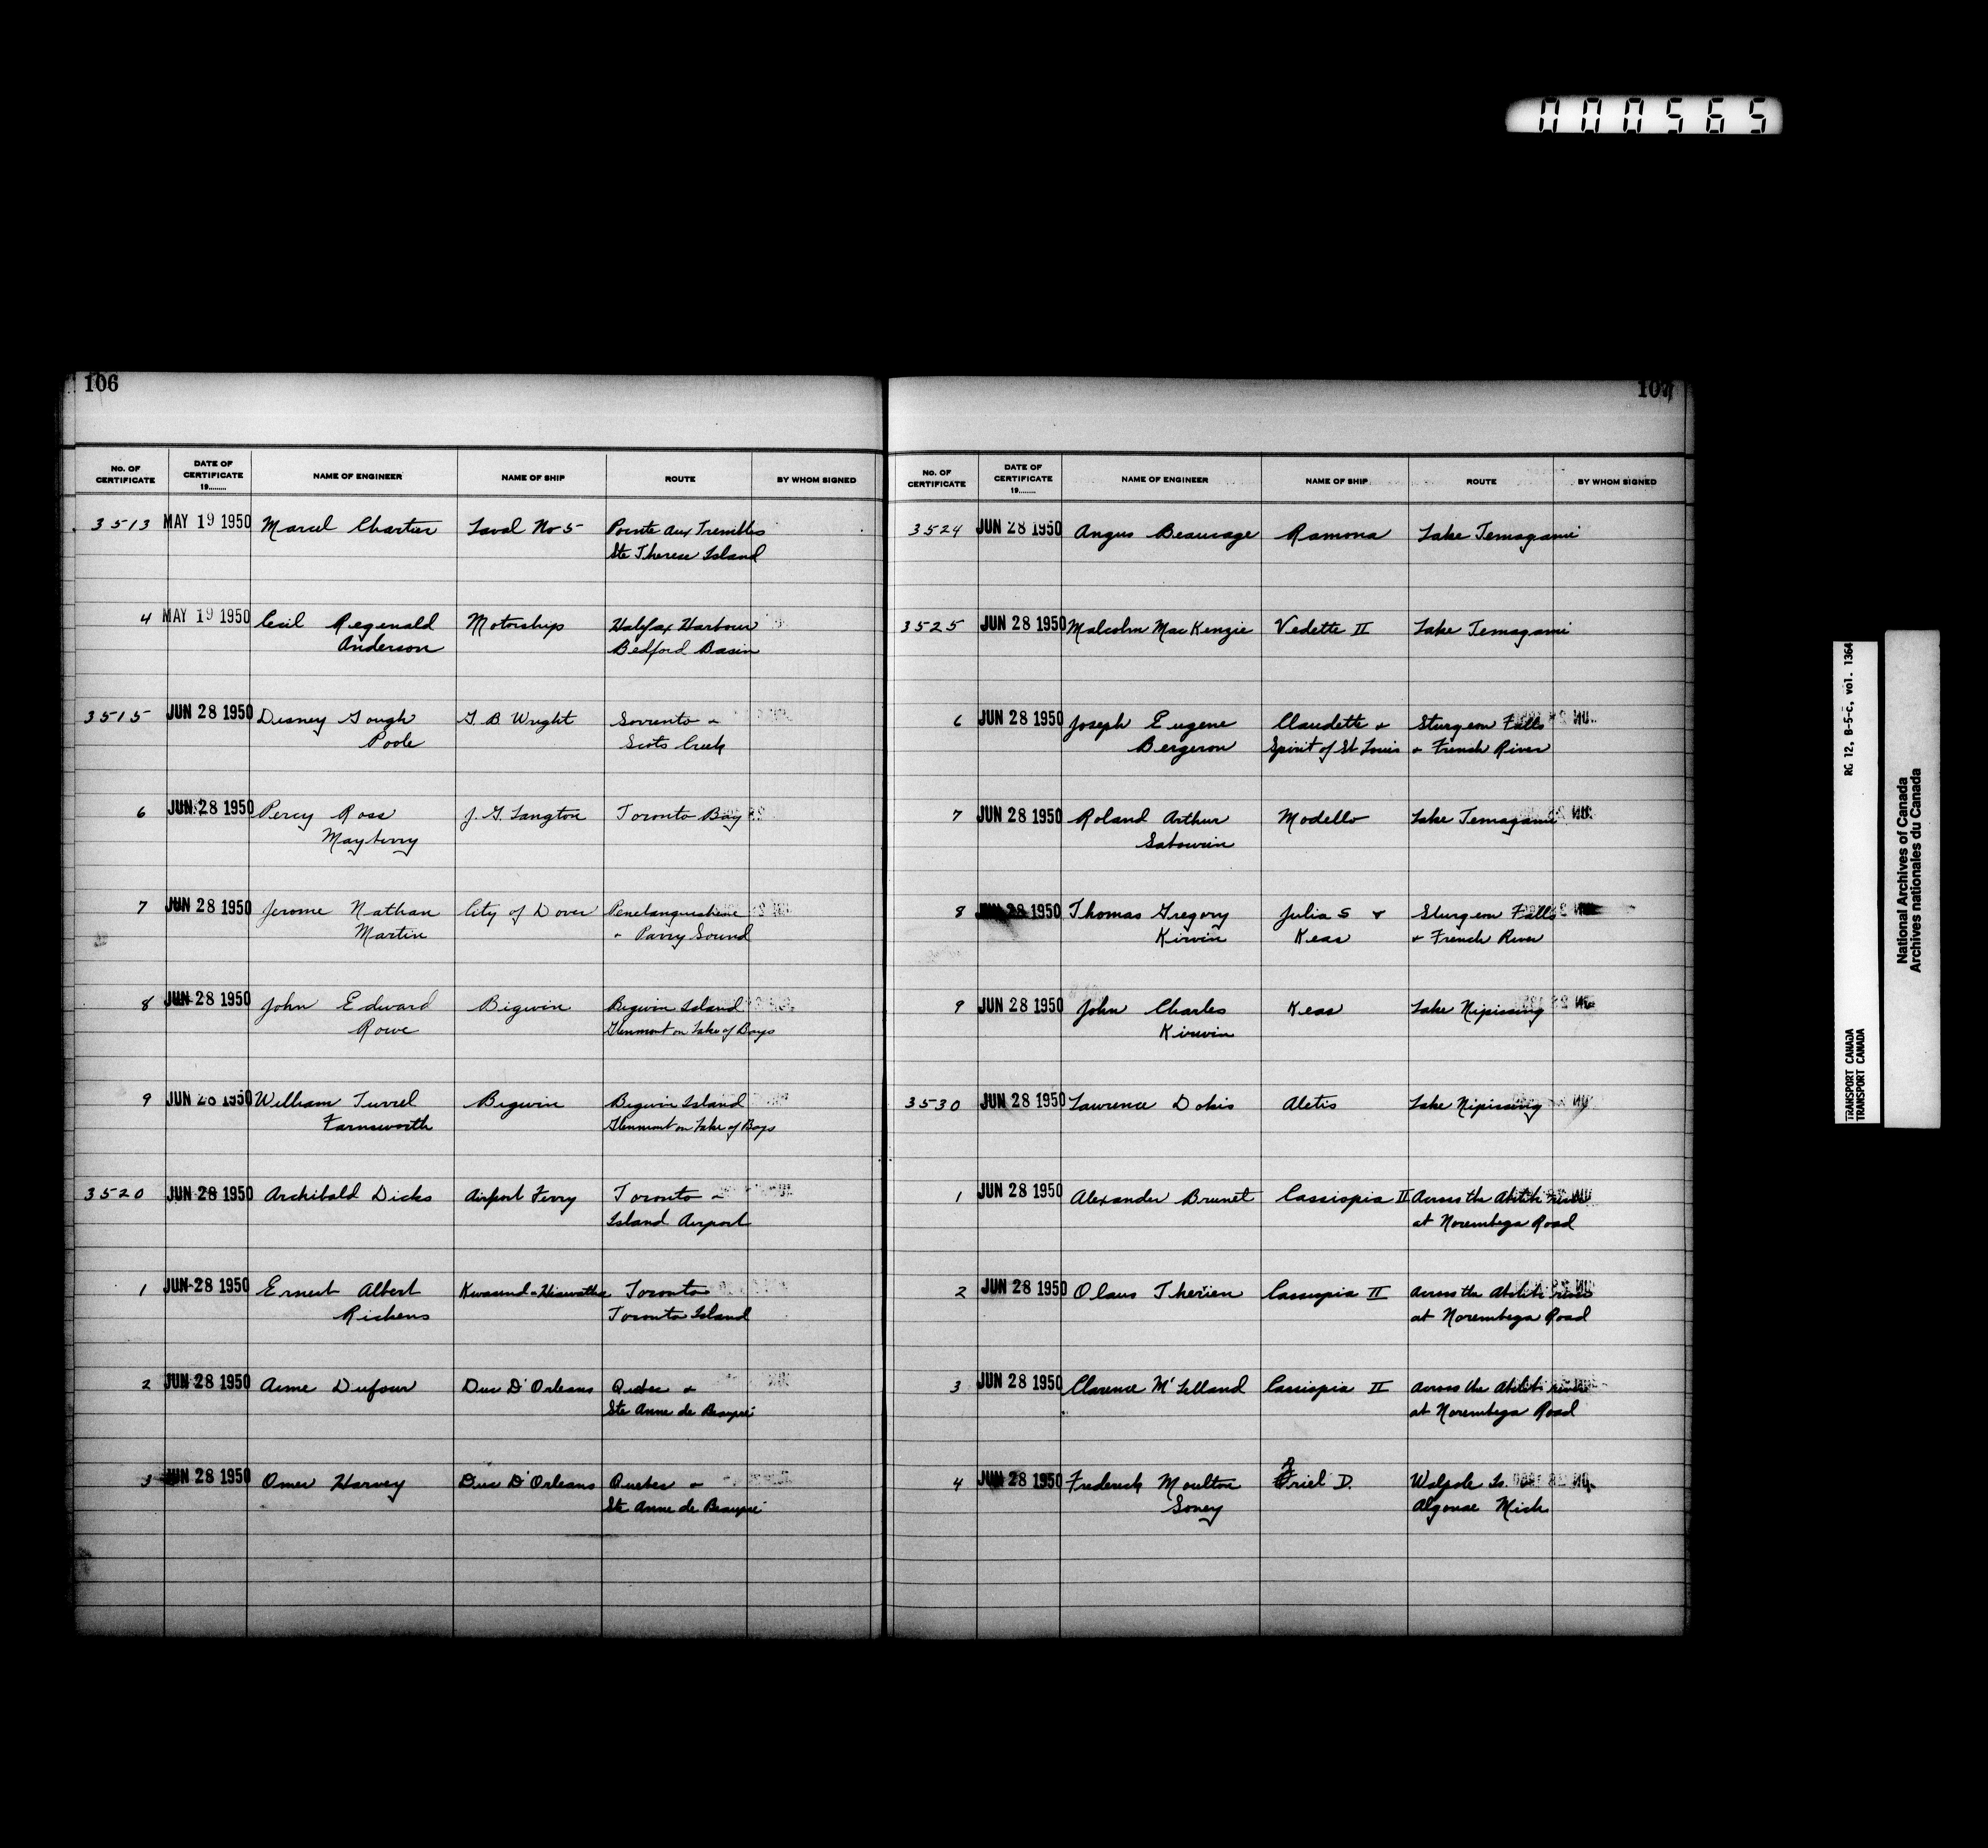 000565
106
No. OF CERTIFICATE DATE OF CERTIFICATE 19........ NAME OF ENGINEER NAME OF SHIP ROUTE BY WHOM SIGNED
3513 MAY 19 1950 Marcel Chartier Laval No 5 Pointe aux Trembles
Ste Therese Island
4 MAY 19 1950 Cecil Regenald Motorships Halifax Harbour
Anderson Bedford Basin
3515 JUN 28 1950 Disney Gough G. B. Wright Sorrento &
Poole Scots Creek
6 JUN 28 1950 Percy Ross J. G. Langton Toronto Bay
Mayberry
7 JUN 28 1950 Jerome Nathan City of Dover Penetanguishene
Martin & Parry Sound
8 JUN 28 1950 John Edward Bigwin Bigwin Island
Rowe Glenmont on Lake of Bays
9 JUN 28 1950 William Turrel Bigwin Bigwin Island
Farnsworth Glenmont on Lake of Bays
3520 JUN 28 1950 Archibald Dicks Airport Ferry Toronto &
Island Airport
1 JUN 28 1950 Ernest Albert Kwasind & Hiawatha Toronto
Rickens Toronto Island
2 JUN 28 1950 Aime Dufour Duc D'Orleans Quebec &
Ste Anne de Beaupré
3 JUN 28 1950 Omer Harvey Duc D'Orleans Quebec &
Ste Anne de Beaupré
107
No. OF CERTIFICATE DATE OF CERTIFICATE 19........ NAME OF ENGINEER NAME OF SHIP ROUTE BY WHOM SIGNED
3524 JUN 28 1950 Angus Beaucage Ramona Lake Temagami
3525 JUN 28 1950 Malcolm MacKenzie Vedette II Lake Temagami
6 JUN 28 1950 Joseph Eugene Claudette & Sturgeon Falls
Bergeron Spirit of St Louis & French River
7 JUN 28 1950 Roland Arthur Modello Lake Temagami
Sabourin
8 JUN 28 1950 Thomas Gregory Julia S & Sturgeon Falls
Kirwin Keas & French River
9 JUN 28 1950 John Charles Keas Lake Nipissing
Kirwin
3530 JUN 28 1950 Lawrence Dokis Aletis Lake Nipissing
1 JUN 28 1950 Alexander Brunet Cassiopia II Across the Abitibi river
at Norembega Road
2 JUN 28 1950 Olaus Therien Cassiopia II Across the Abitibi river
at Norembega Road
3 JUN 28 1950 Clarence McLelland Cassiopia II Across the Abitibi river
at Norembega Road
4 JUN 28 1950 Frederick Moulton Oriel D. Walpole Is.
Soney Algonac Mich
RG 12, B-5-c, vol. 1364
TRANSPORT CANADA
TRANSPORT CANADA
National Archives of Canada
Archives nationales du Canada